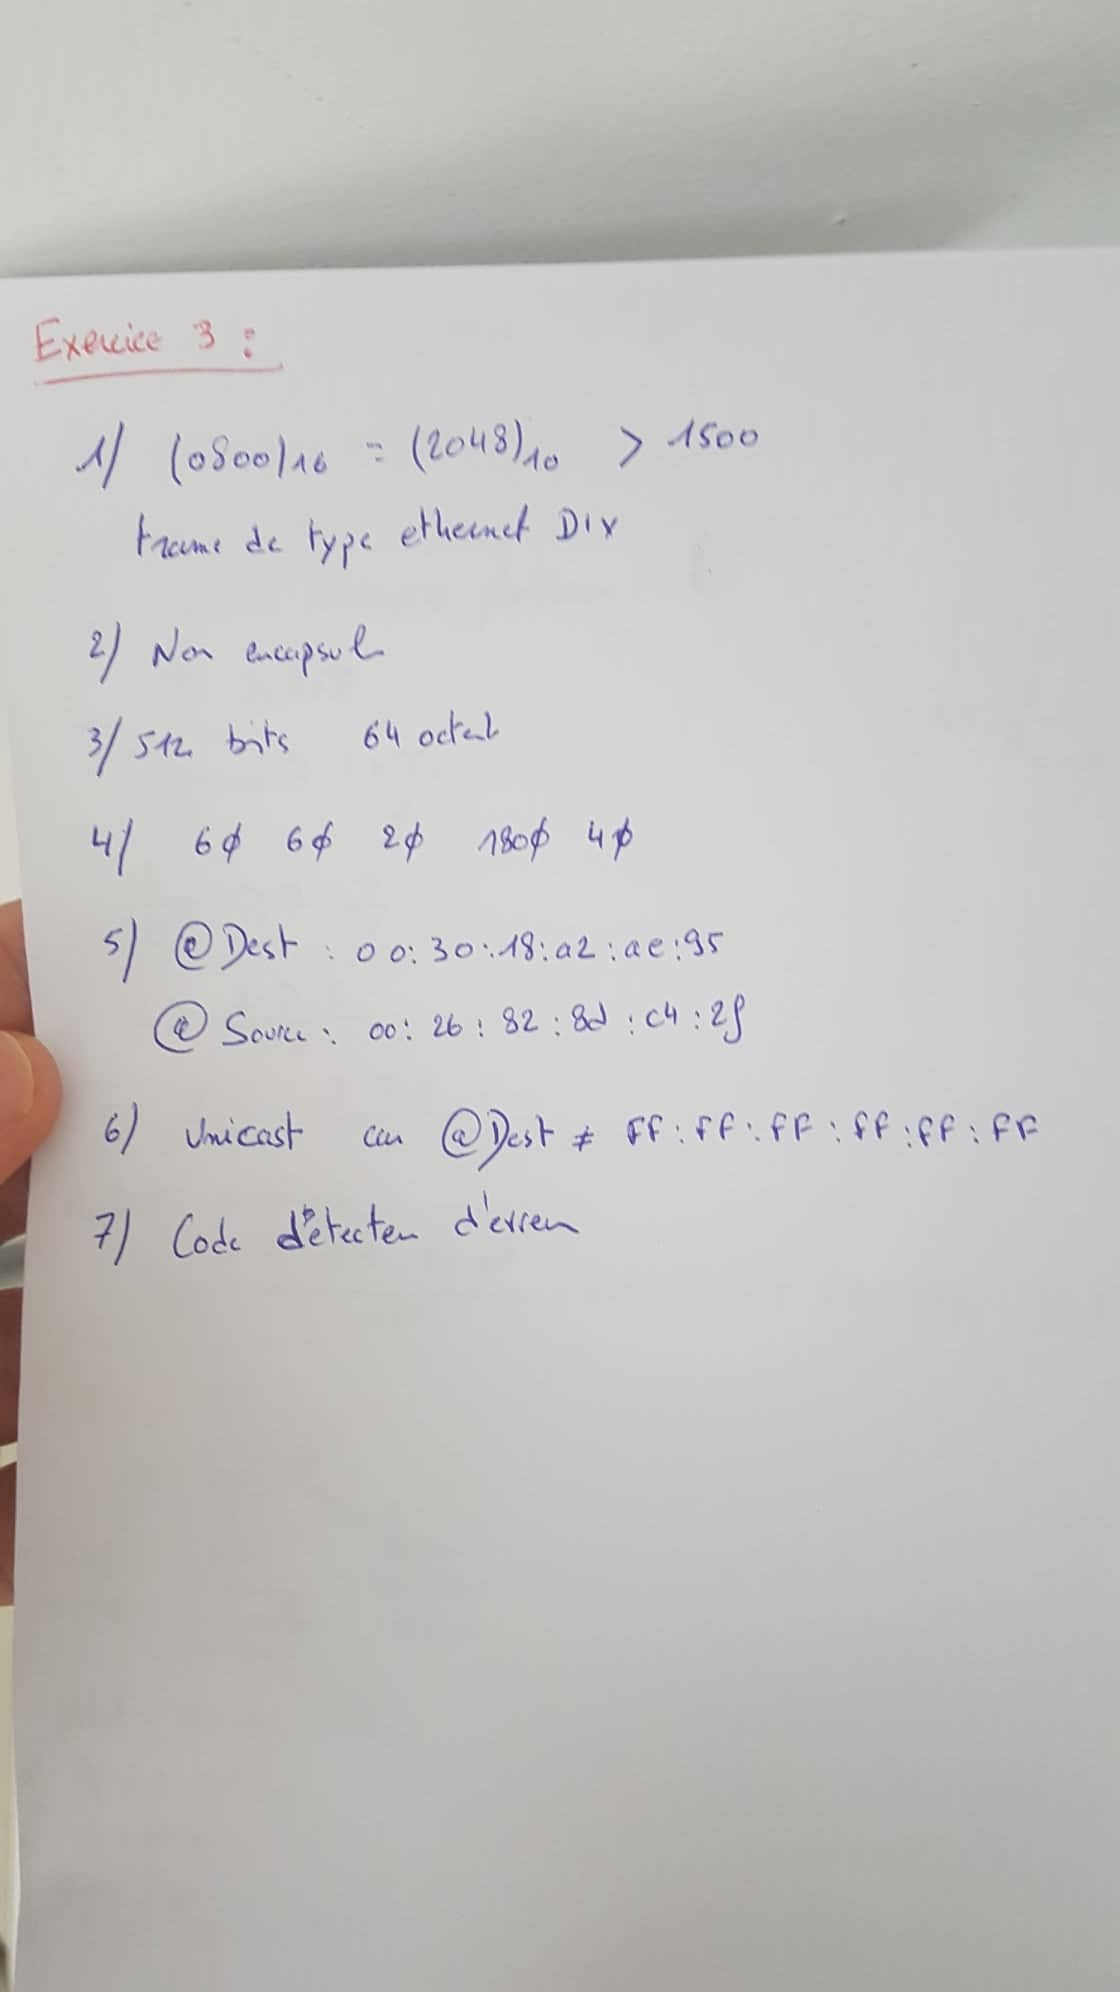 Exercice 3 :
1/ (0800)16 = (2048)10 > 1500
trame de type ethernet DIX
2/ Non encapsul
3/ 512 bits 64 octet
4/ 6ϕ 6ϕ 2ϕ 180ϕ 4ϕ
5) @Dest : 00:30:18:a2:ae:95
@ Source : 00:26:82:8d:c4:2f
6) Unicast car @Dest ≠ FF:FF:FF:FF:FF:FF
7) Code détecteur d'erreur